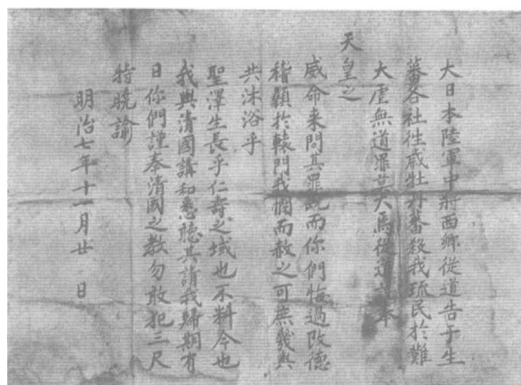 大日本陸軍中將西鄉從道告于生
蕃各社徃歳牡丹蕃殺我琉民於難
大虐無道罪莫大焉從道奉
天皇之
威命来問其罪既而你們悔過改德
稽顙於轅門我憫而赦之可庶幾與
共沐浴乎
聖澤生長乎仁壽之域也不料今也
我與清國講和悉聽其請我歸期有
日你們謹奉清國之教勿敢犯三尺
特曉諭
明治七年十一月廿 日